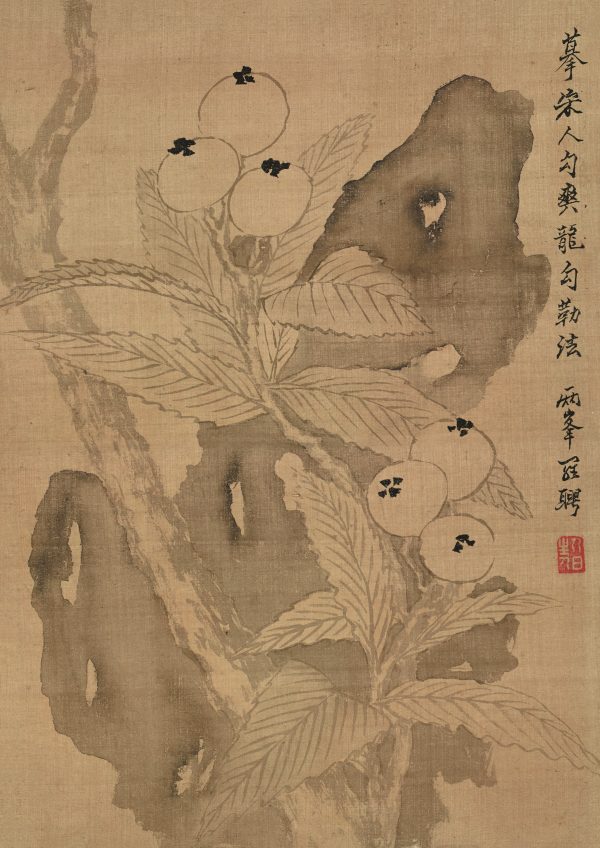 摹宋人勾爽龍勾勒法 兩峯羅聘